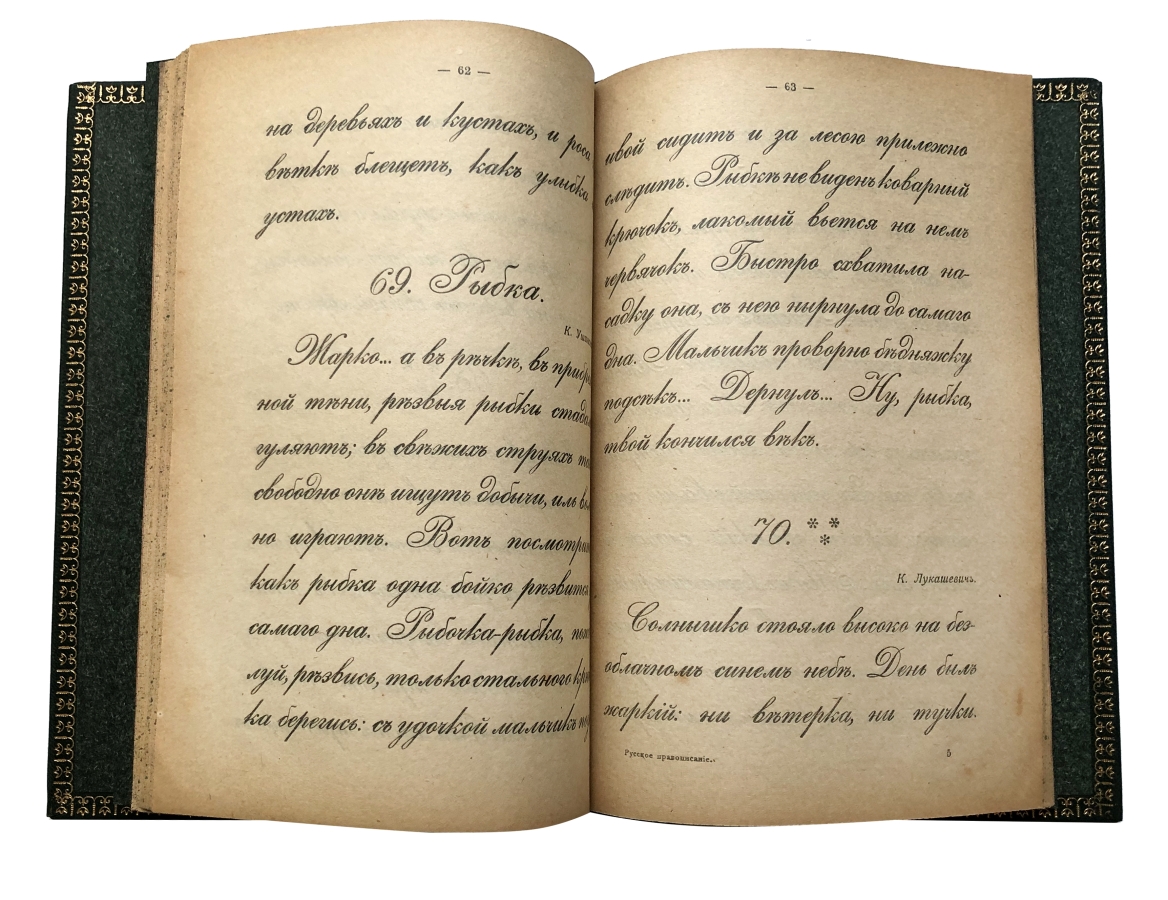 — 62 —
на деревьяхъ и кустахъ, и роса
вѣткѣ блещетъ, какъ улыбка
устахъ.
69. Рыбка.
К.
Жарко... а въ рѣчкѣ, въ
ной тѣни, рѣзвыя рыбки
гуляютъ; въ свѣжихъ струяхъ
свободно онѣ ищутъ добычи, иль
но играютъ. Вотъ
какъ рыбка одна бойко рѣзвится
самаго дна. Рыбочка-рыбка,
луй, рѣзвись, только стального
ка берегись: съ удочкой мальчикъ
— 63 —
ивой сидитъ и за лесою прилежно
слѣдитъ. Рыбкѣ не виденъ коварный
крючокъ, лакомый вьется на немъ
червячокъ. Быстро схватила на-
садку она, съ нею нырнула до самаго
дна. Мальчикъ проворно бѣдняжку
подсѣкъ... Дернулъ... Ну, рыбка,
твой кончился вѣкъ.
70. ***
К. Лукашевичъ.
Солнышко стояло высоко на без-
облачномъ синемъ небѣ. День былъ
жаркій: ни вѣтерка, ни тучки.
Русское правописаніе.
5